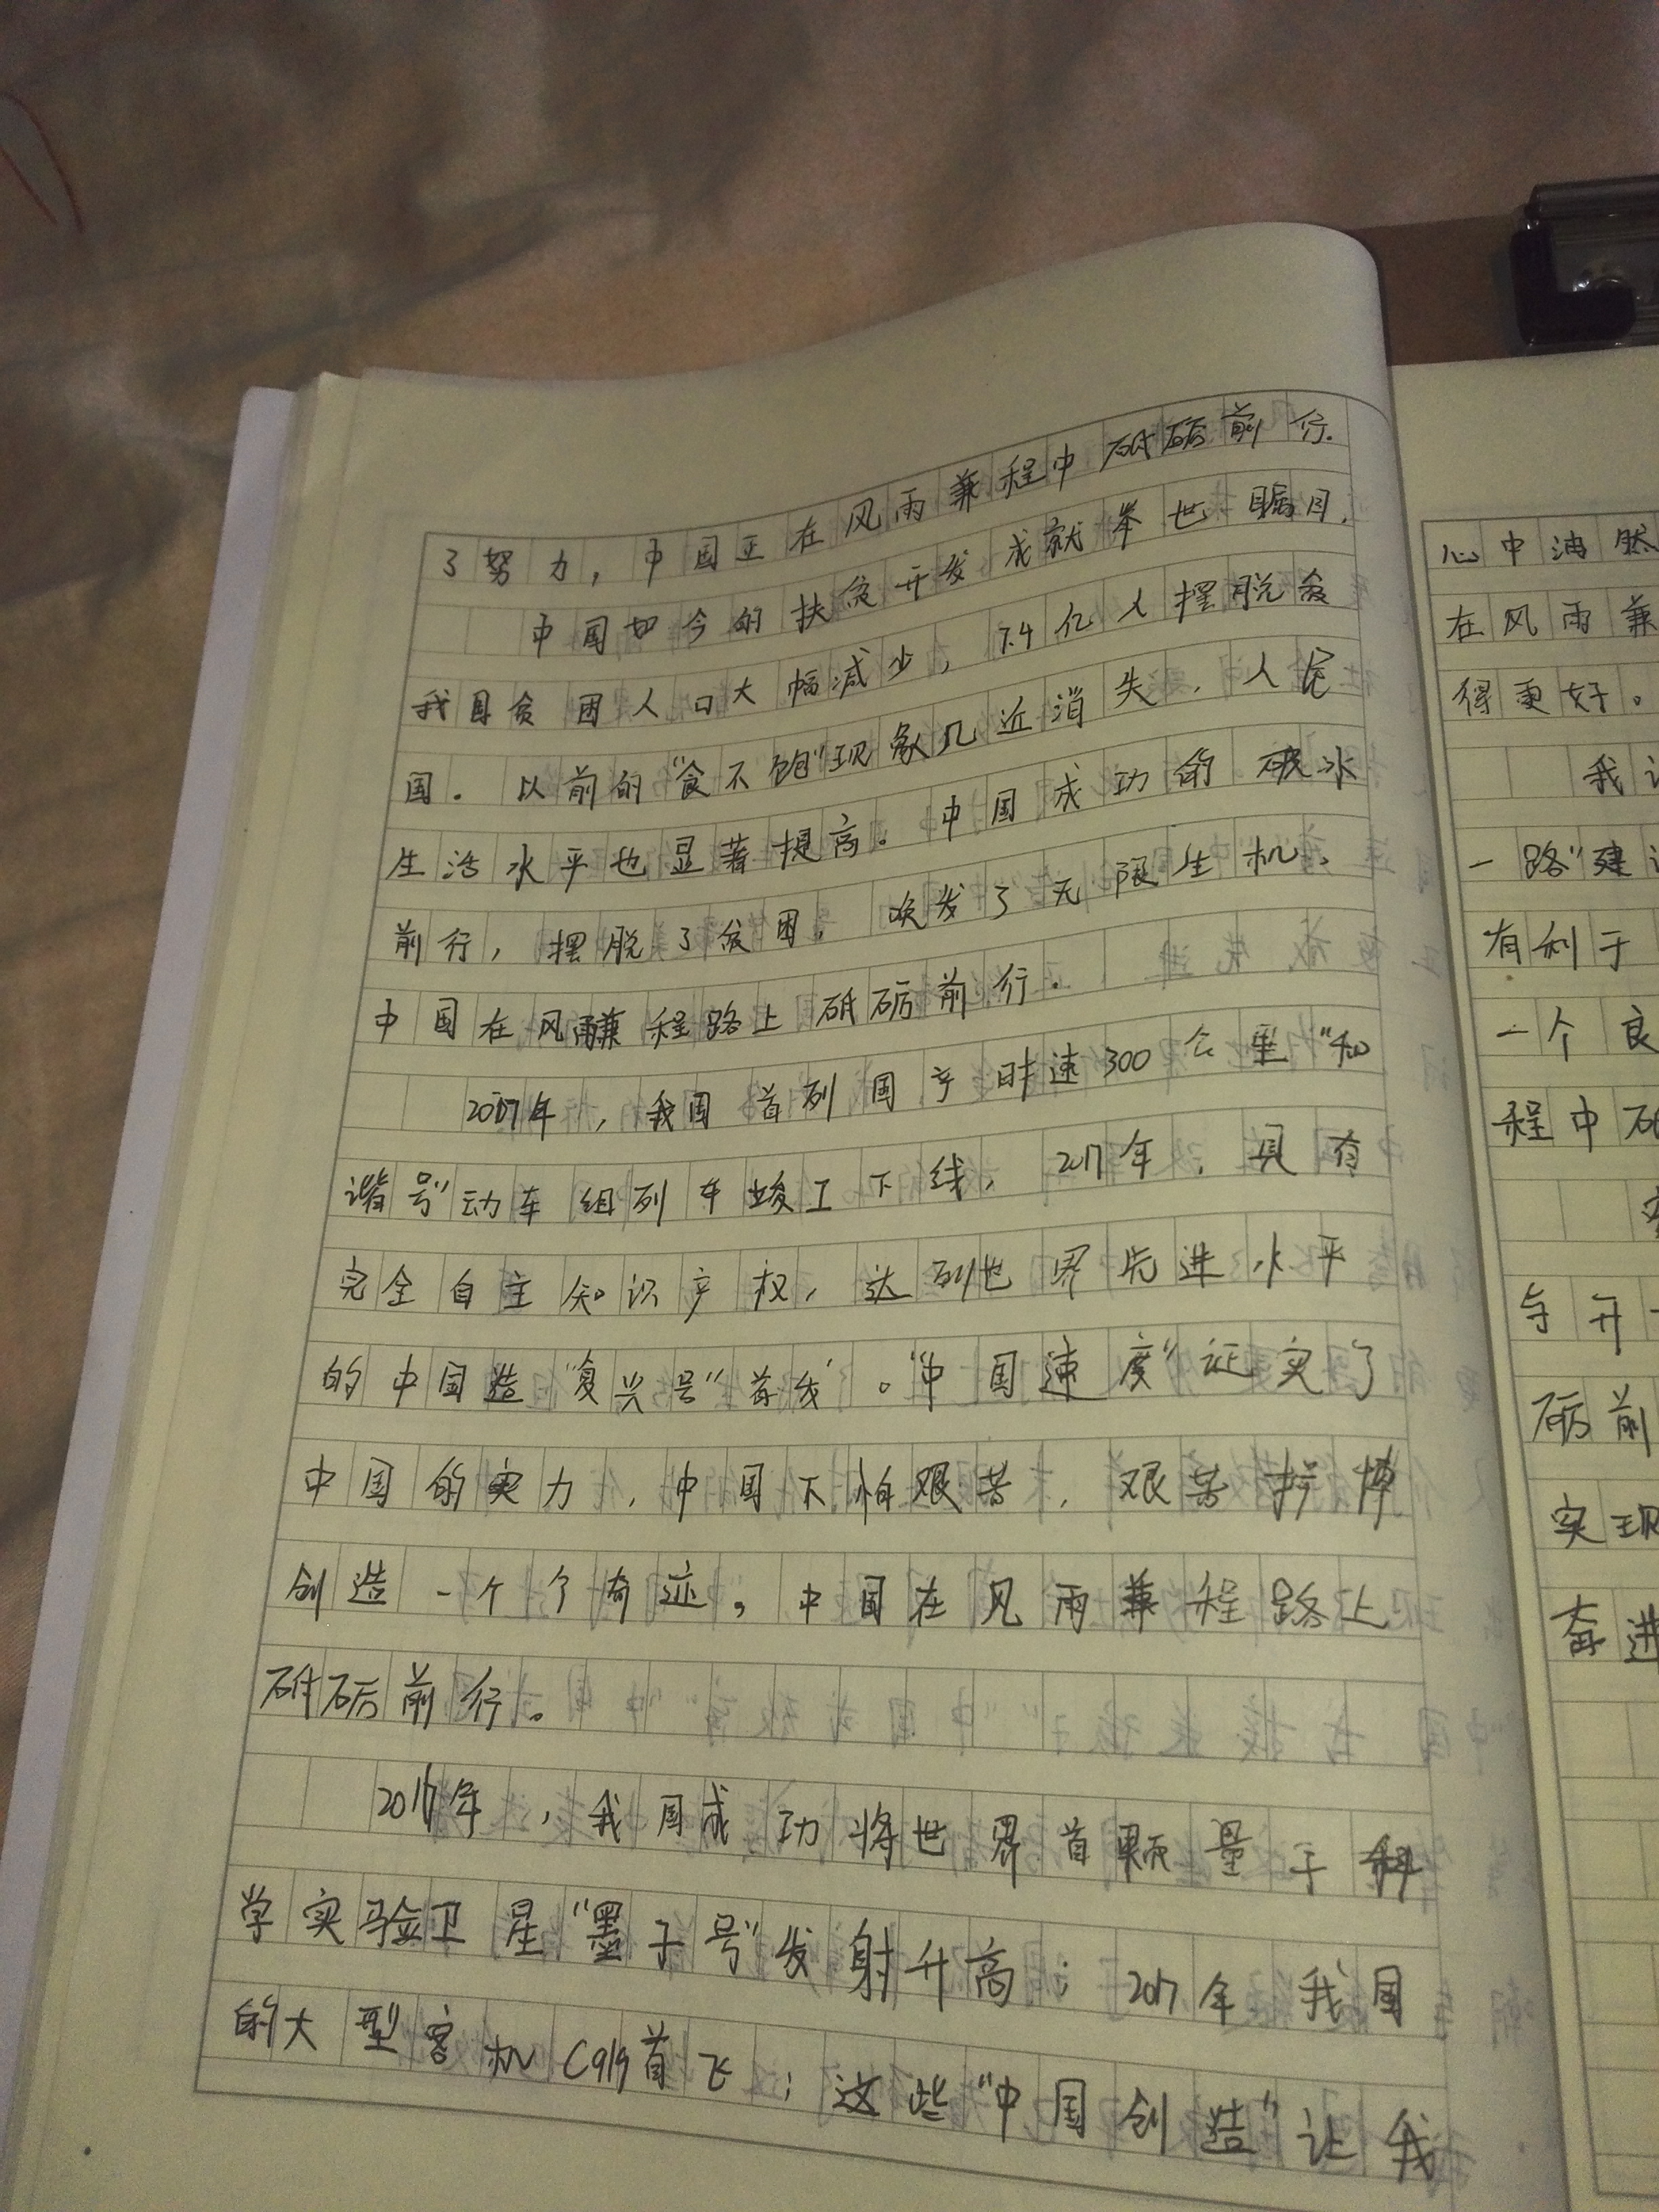 了努力，中国正在风雨兼程中砥砺前行.
中国如今的扶贫开发成就举世瞩目.
我国贫困人口大幅减少，7.4亿人摆脱贫
困. 以前的“食不饱”现象几近消失. 人民
生活水平也显著提高. 中国成功的破冰
前行，摆脱了贫困，焕发了无限生机.
中国在风雨兼程路上砥砺前行.
2007年，我国首列国产时速300公里“和
谐号”动车组列车竣工下线，2017年，具有
完全自主知识产权，达到世界先进水平
的中国造“复兴号”首线。“中国速度”证实了
中国的实力，中国不怕艰苦，艰苦拼博
创造一个个奇迹，中国在风雨兼程路上
砥砺前行。
2016年，我国成功将世界首颗量子科
学实验卫星“墨子号”发射升高；2017年我国
的大型客机C919首飞；这些“中国创造”让我
心中油然
在风雨兼
得更好。
我
一路”建
有利于
一个良
程中砥
与开
砺前
实现
奋进